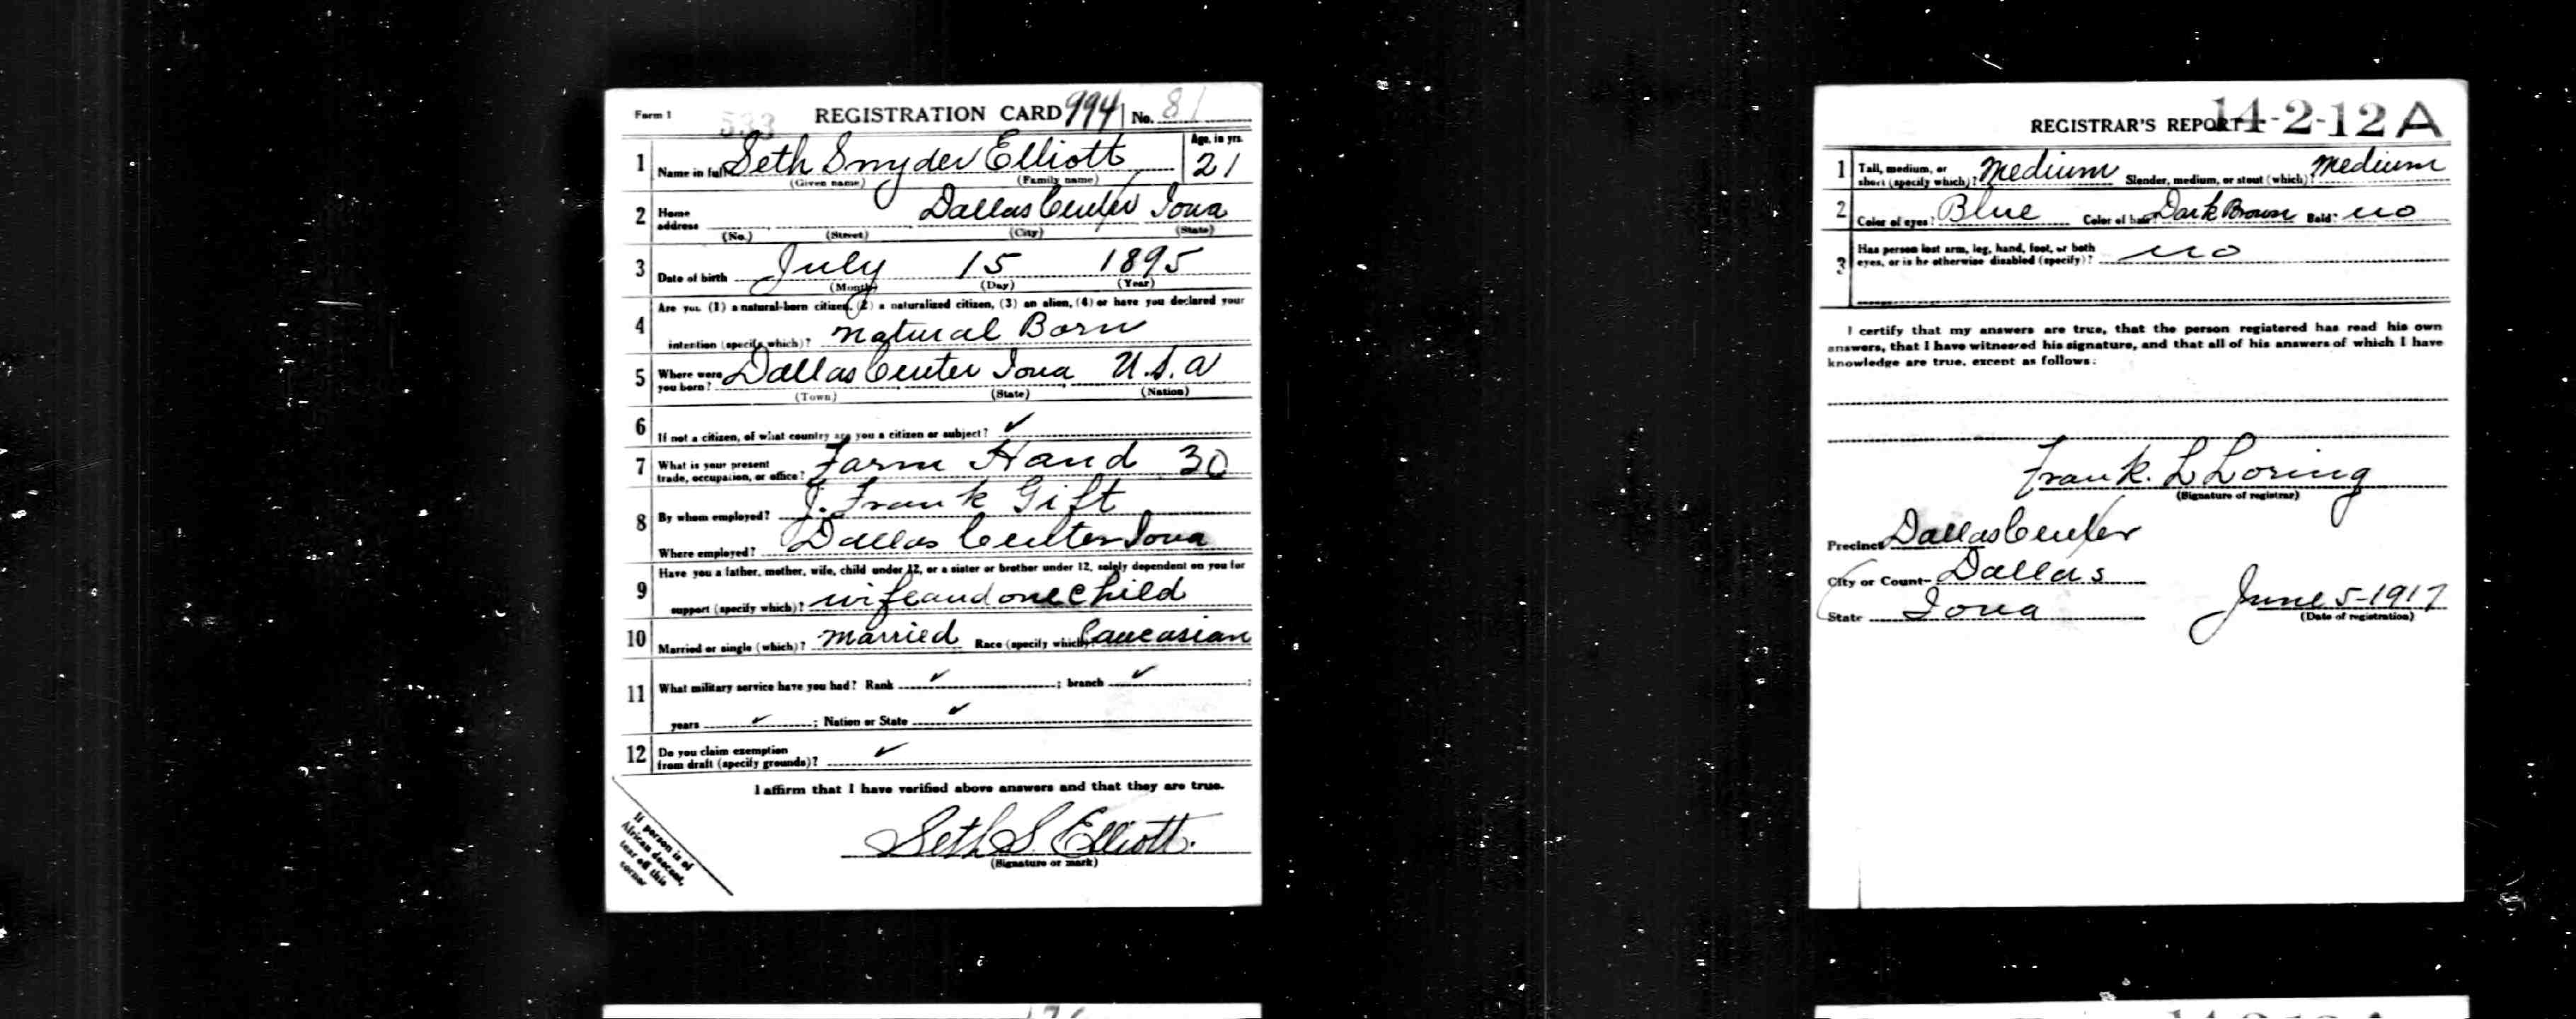 Form 1 533 REGISTRATION CARD 994 No. 81
1 Name in full Seth Snyder Elliott Age, in yrs. 21
(Given name) (Family name)
2 Home address Dallas Center Iowa
(No.) (Street) (City) (State)
3 Date of birth July 15 1895
(Month) (Day) (Year)
4 Are you (1) a natural-born citizen, (2) a naturalized citizen, (3) an alien, (4) or have you declared your
intention (specify which)? Natural Born
5 Where were you born? Dallas Center Iowa U.S.A
(Town) (State) (Nation)
6 If not a citizen, of what country are you a citizen or subject? ✓
7 What is your present trade, occupation, or office? Farm Hand 30
8 By whom employed? J. Frank Gift
Where employed? Dallas Center Iowa
9 Have you a father, mother, wife, child under 12, or a sister or brother under 12, solely dependent on you for
support (specify which)? wife and one child
10 Married or single (which)? Married Race (specify which)? Caucasian
11 What military service have you had? Rank ✓ ; branch ✓ ;
years ✓ ; Nation or State ✓
12 Do you claim exemption from draft (specify grounds)? ✓
I affirm that I have verified above answers and that they are true.
Seth S. Elliott.
(Signature or mark)
If person is of
African descent,
tear off this
corner
REGISTRAR'S REPORT 14-2-12 A
1 Tall, medium, or short (specify which)? Medium Slender, medium, or stout (which)? Medium
2 Color of eyes? Blue Color of hair? Dark Brown Bald? no
3 Has person lost arm, leg, hand, foot, or both
eyes, or is he otherwise disabled (specify)? no
I certify that my answers are true, that the person registered has read his own
answers, that I have witnessed his signature, and that all of his answers of which I have
knowledge are true, except as follows:
Frank. L Loring
(Signature of registrar)
Precinct Dallas Center
City or County Dallas
State Iowa June 5-1917
(Date of registration)